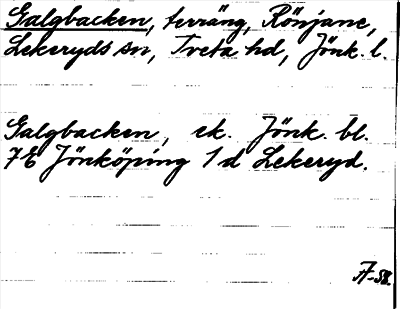 Galgbacken, terräng, Rönjane,
Lekeryds sn, Tveta hd, Jönk. l.
Galgbacken, ek. Jönk. bl.
7E Jönköping 1d Lekeryd.